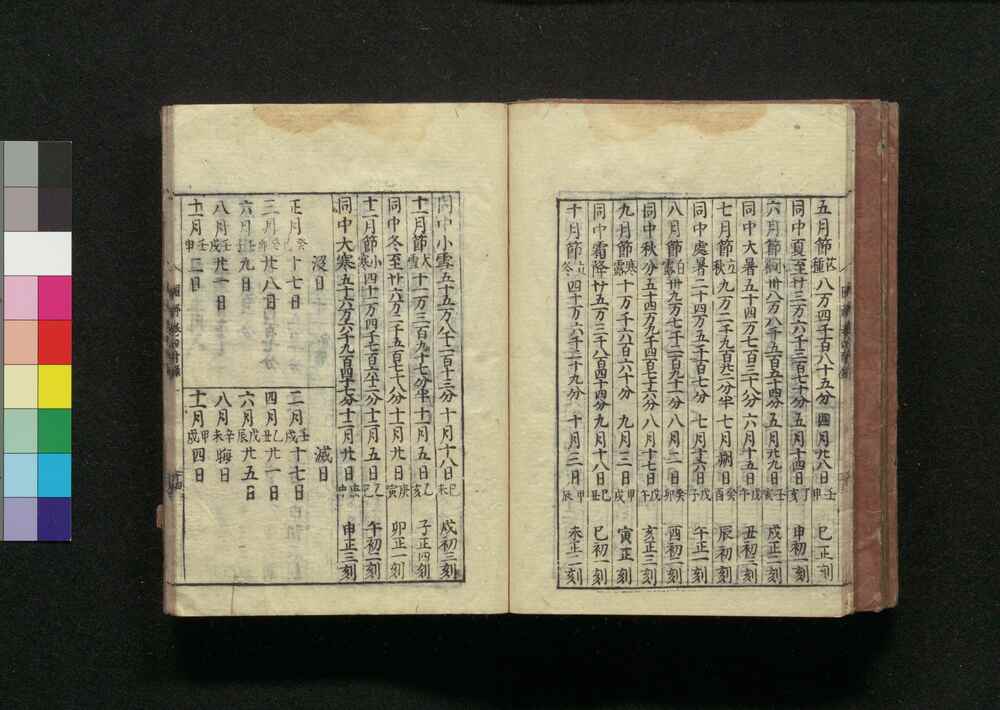 五月節芒種八万四千百八十五分 四月廿八日壬申 巳正二刻
同中夏至廿三万六千三百七十分 五月十四日丁亥 申初三刻
六月節 卅八万八千五百五十四分 五月廿九日壬寅 戌正二刻
同中大暑五十四万七百三十八分 六月十五日戊午 丑初三刻
七月節立秋九万二千九百廿二分半 七月朔日癸酉 辰初三刻
同中處暑二十四万五千百七分 七月十六日戊子 午正一刻
八月節白露卅九万七千二百九十一分 八月二日癸卯 酉初二刻
同中秋分五十四万九千四百七十六分 八月十七日戊午 亥正三刻
九月節寒露十万千六百六十分 九月二日甲戌 寅正 刻
同中霜降廿五万三千八百四十四分 九月十八日己丑 巳初一刻
十月節立冬四十万六千二十九分 十月三日甲辰 未正二刻
同中小雪五十五万八千二百十三分 十月十八日己未 戌初三刻
十一月節大雪十一万三百九十七分半 十一月五日乙亥 子正四刻
同中冬至廿六万二千五百七十八分 十一月廿日庚寅 卯正一刻
十二月節小寒四十一万四千七百六十二分 十二月五日乙巳 午初二刻
同中大寒五十六万六千九百四十七分 十二月廿日庚申 申正三刻
沒日
正月癸巳十七日
三月 廿八日
六月壬 九日
八月壬戌廿一日
十一月壬申二日
滅日
二月壬戌十七日
四月乙丑廿一日
六月戊辰廿五日
八月辛未晦日
十一月甲戌四日